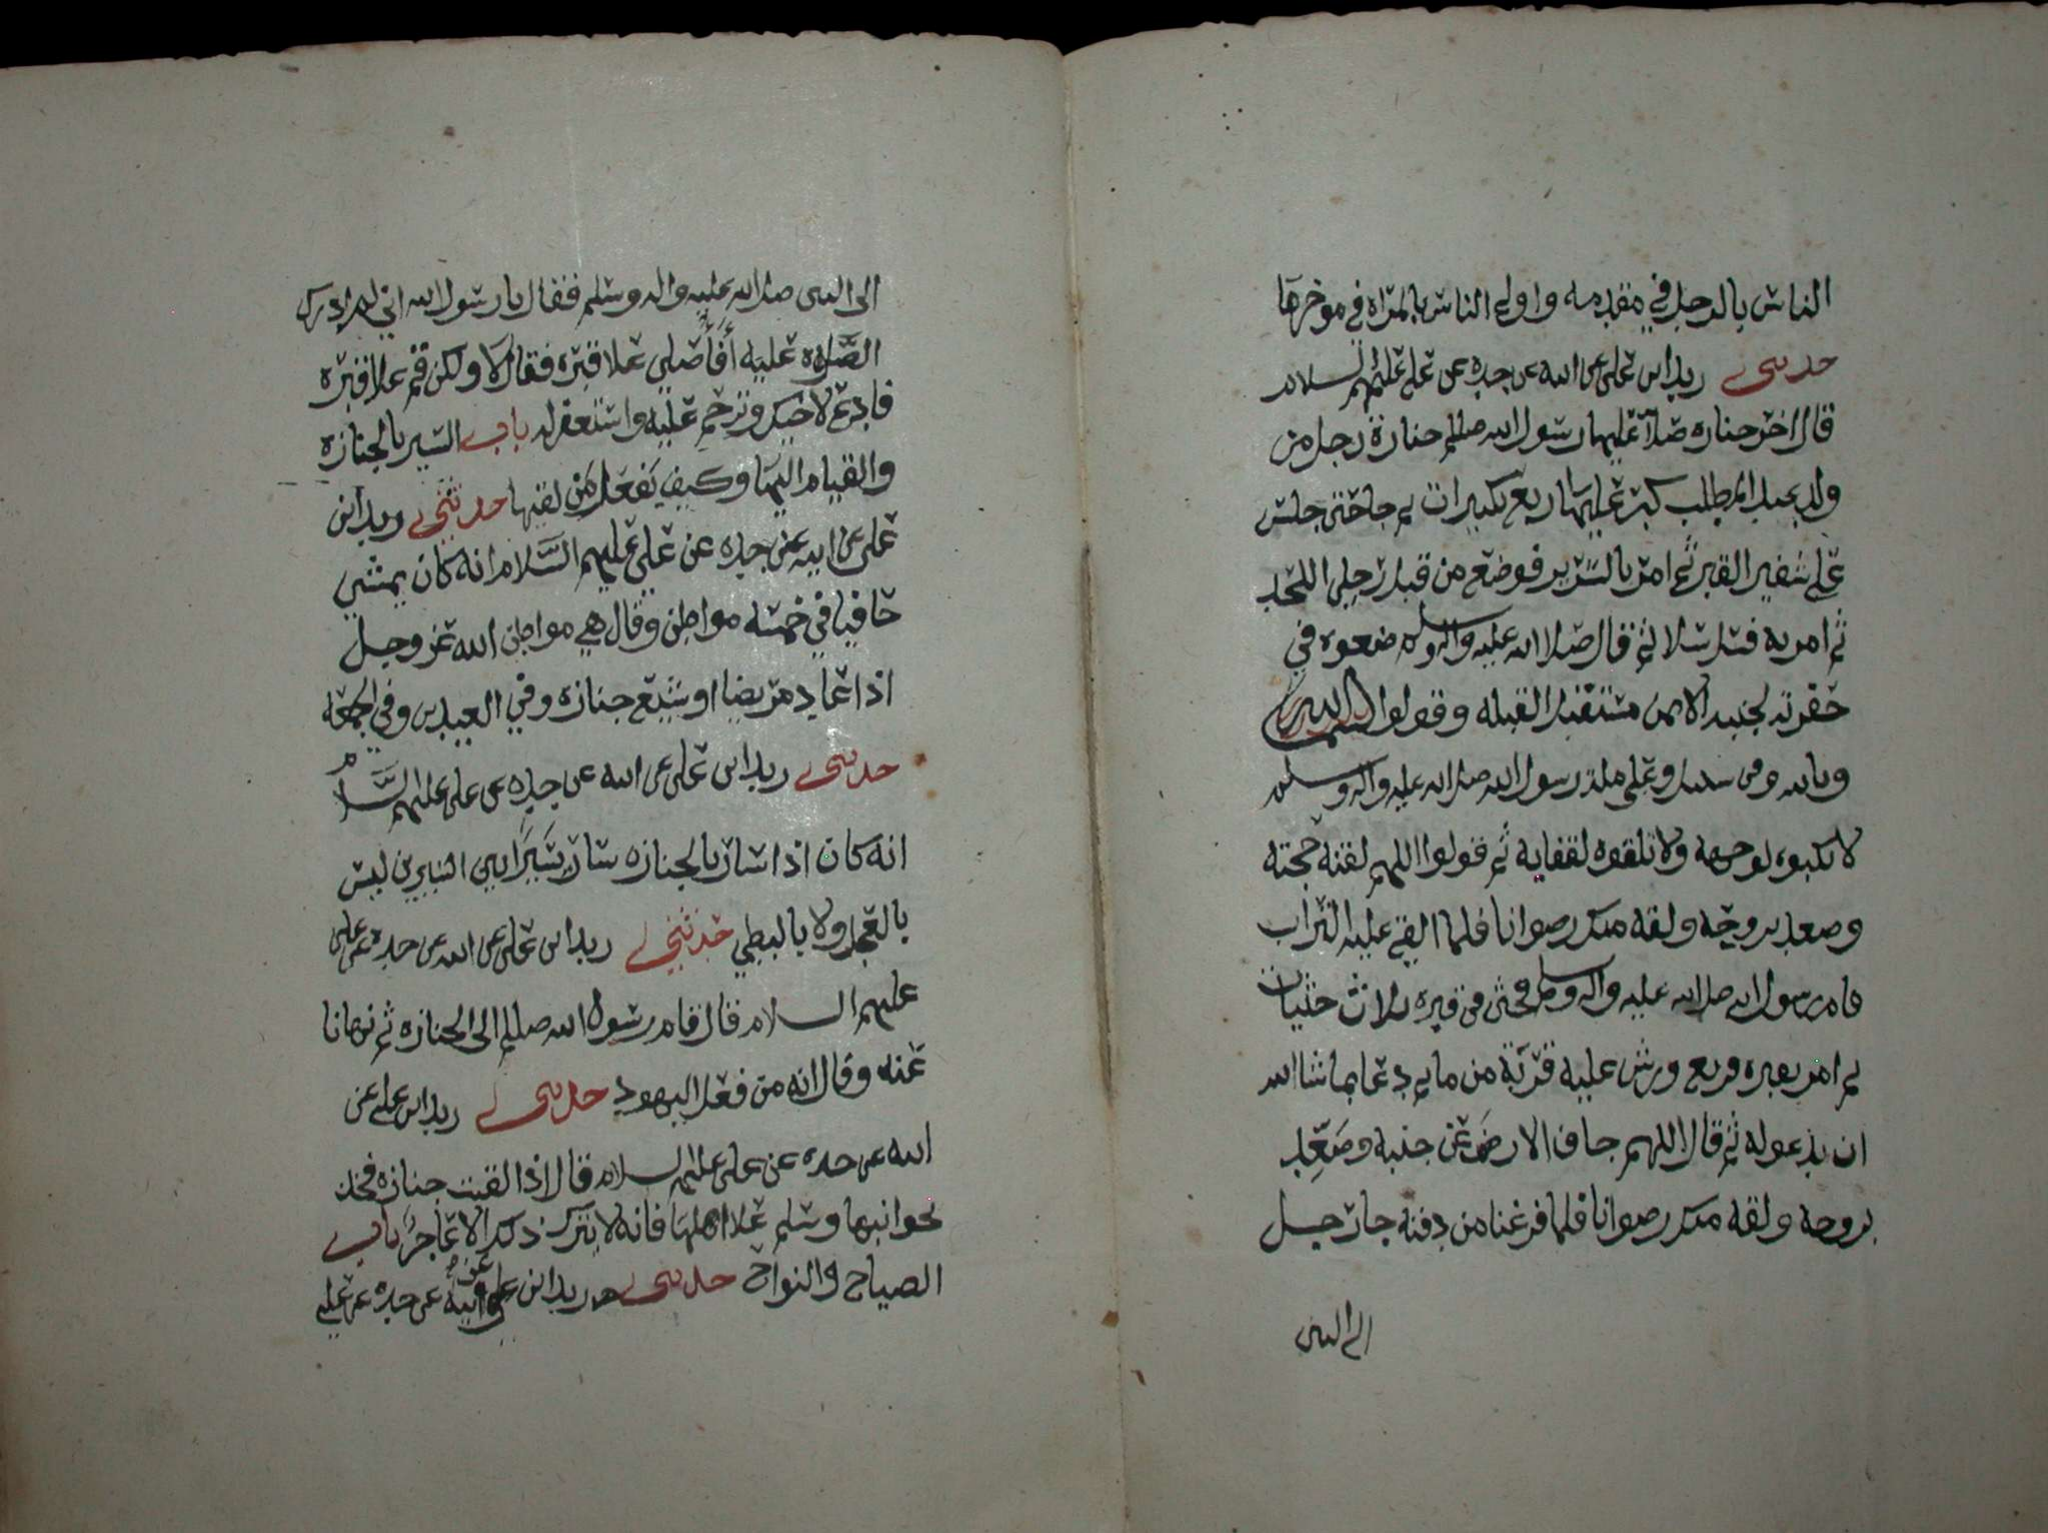 الناس بالرجل في مقدمه واولى الناس بالمراه في موخرها
حدثني زيد ابن علي عن ابيه عن جده عن علي عليهم السلام
قال اخر جنازه صلا عليها رسول الله صللم جنازة رجل من
ولد عبد المطلب كبر عليها اربع تكبيرات ثم جا حتى جلس
على شفير القبر ثم امر بالسرير فوضع من قبل رجلي اللحد
ثم امر به فسل سلا ثم قال صلا الله عليه واله وسلم ضعوه في
حفرته لجنبه الايمن مستقبل القبله وقولوا بسم الله
وبالله وفي سبيل وعلى ملة رسول الله صلى الله عليه واله وسلم
لا تكبوه لوجهه ولا تلقوه لقفايه ثم قولوا اللهم لقنه حجته
وصعد بروحه ولقه منك رضوانا فلما القي عليه التراب
قام رسول الله صلى الله عليه واله وسلم فحثى في قبره ثلاث حثيات
ثم امر بقبره فربع ورش عليه قربة من ما ثم دعا بما شا الله
ان يدعوله ثم قال اللهم جاف الارض عن جنبه وصعد
بروحه ولقه منك رضوانا فلما فرغنا من دفنه جا رجل
الى النبي
الى النبي صلى الله عليه واله وسلم فقال يا رسول الله اني لم ادرك
الصلوه عليه أفأصلي علا قبره فقال لا ولكن قم علا قبره
فادع لاخيك وترحم عليه واستغفر له باب السير بالجنازه
والقيام اليها وكيف يفعل من لقيها حدثني زيد ابن
علي عن ابيه عن جده عن علي عليهم السلام انه كان يمشي
حافيا في خمسه مواطن وقال هي مواطن الله عز وجل
اذا عاد مريضا او شيع جنازه وفي العيدين وفي الجمعه
حدثني زيد ابن علي عن ابيه عن جده عن علي عليهم السلام
انه كان اذا سار بالجنازه سار سيرا بين السيرين ليس
بالعجل ولا بالبطي حدثني زيد ابن علي عن ابيه عن جده عن علي
عليهم السلام قال قام رسول الله صللم الى الجنازه ثم نهانا
عنه وقال انه من فعل اليهود حدثني زيد ابن علي عن
ابيه عن جده عن علي عليهم السلام قال اذا لقيت جنازه فخذ
بجوانبها وسلم علا اهلها فانه لا يترك ذلك الا عاجز باب
الصياح والنواح حدثني زيد ابن علي عن ابيه عن جده عن علي